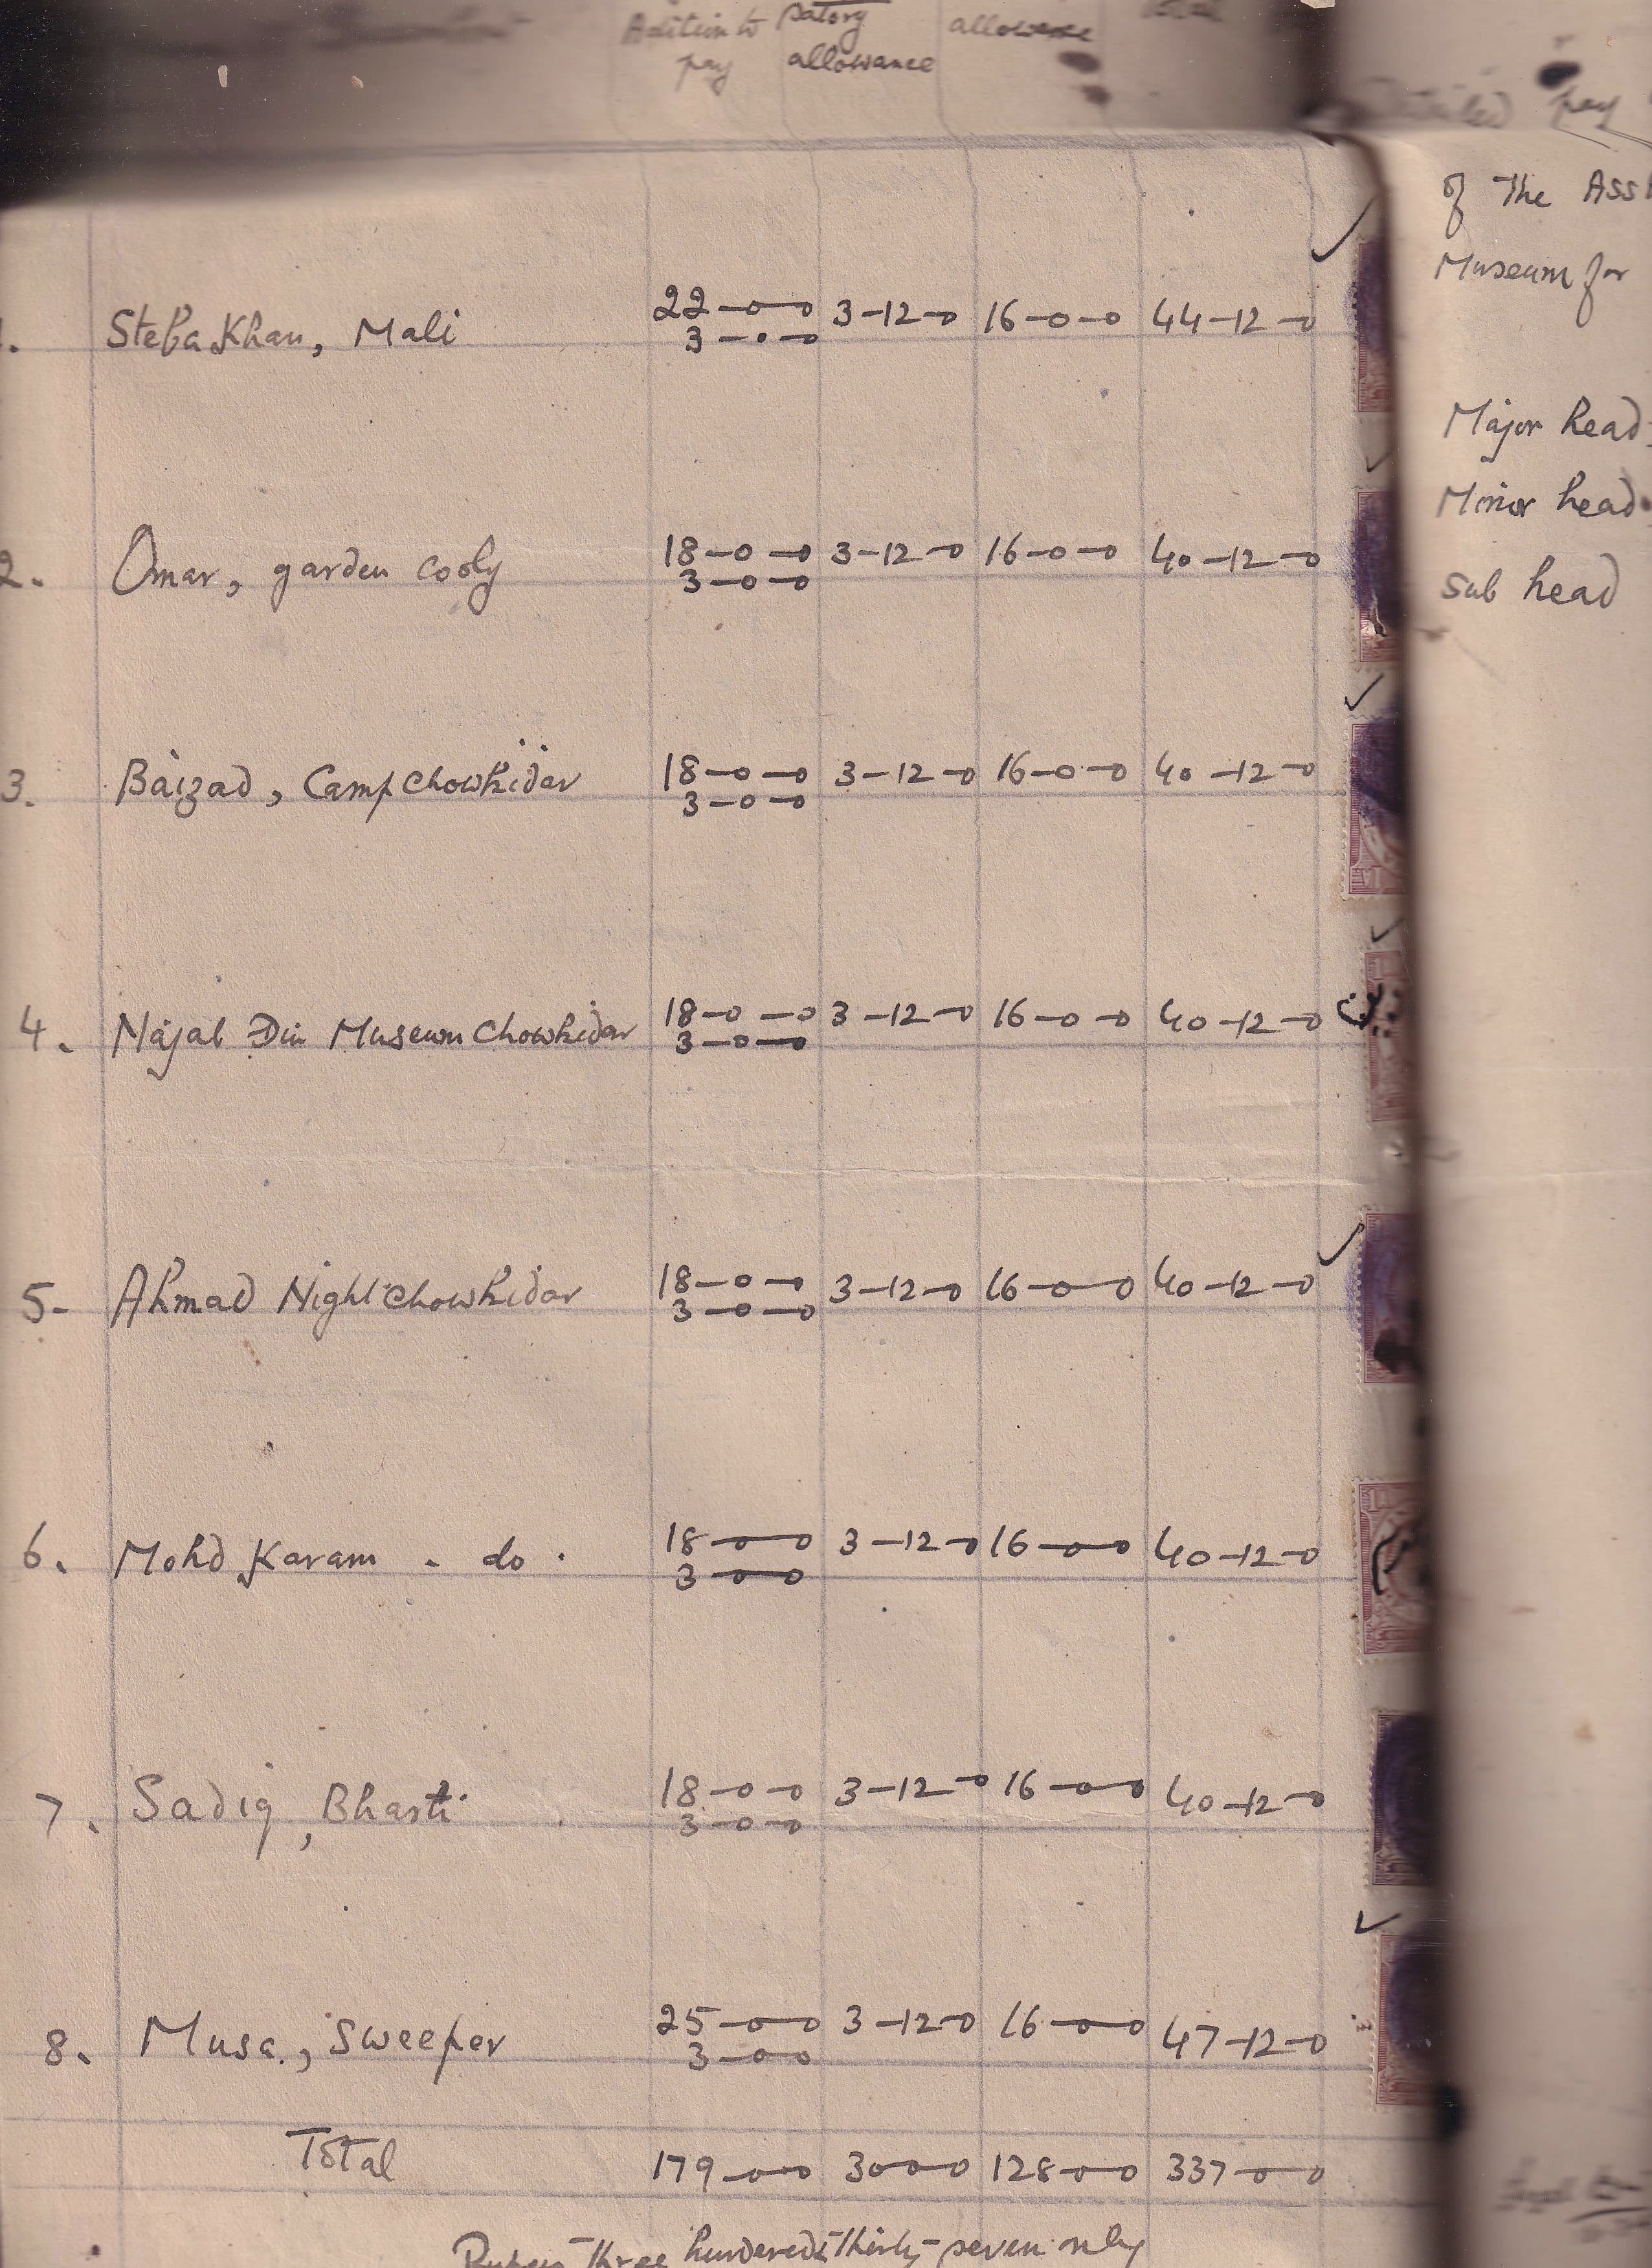 Addition to satory allowance
pay allowance
pay
of The Asst
Museum for
Major head
Minor head
Sub head
22-0-0 3-12-0 16-0-0 44-12-0
1. Steba Khan, Mali
3-0-0
18-0-0 3-12-0 16-0-0 40-12-0
2. Omar, garden cooly
3-0-0
18-0-0 3-12-0 16-0-0 40-12-0
3. Baizad, Camp Chowkidar
3-0-0
18-0-0 3-12-0 16-0-0 40-12-0
4. Najab Din Museum Chowkidar
3-0-0
18-0-0 3-12-0 16-0-0 40-12-0
5- Ahmad Night Chowkidar
3-0-0
18-0-0 3-12-0 16-0-0 40-12-0
6. Mohd Karam - do.
3-0-0
18-0-0 3-12-0 16-0-0 40-12-0
7. Sadiq, Bhasti
3-0-0
25-0-0 3-12-0 16-0-0 47-12-0
8. Musa, Sweeper
3-0-0
Total 179-0-0 30-0-0 128-0-0 337-0-0
Rupees three hundered & thirty-seven only